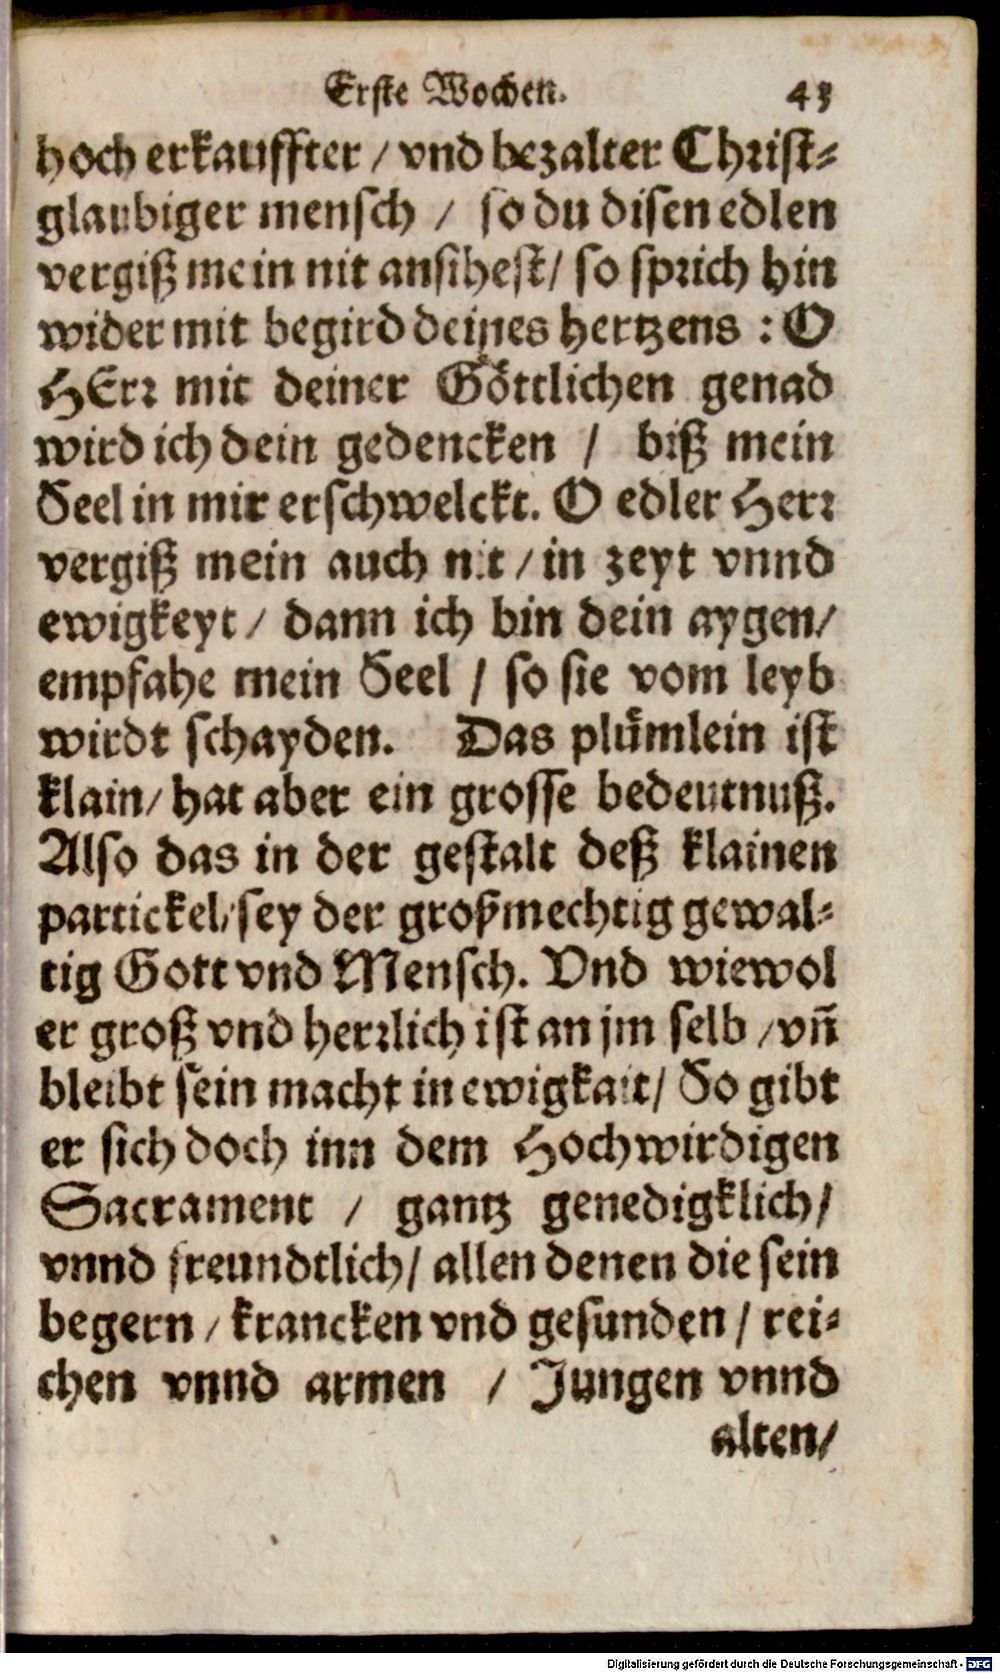 Erste Wochen. 43
hoch erkauffter / vnd bezalter Christ-
glaubiger mensch / so du disen edlen
vergiß mein nit ansihest / so sprich hin
wider mit begird deines hertzens : O
HErr mit deiner Göttlichen genad
wird ich dein gedencken / biß mein
Seel in mir erschwelckt. O edler Herr
vergiß mein auch nit / in zeyt vnnd
ewigkeyt / dann ich bin dein aygen /
empfahe mein Seel / so sie vom leyb
wirdt schayden. Das plümlein ist
klain / hat aber ein grosse bedeutnuß.
Also das in der gestalt deß klainen
partickel / sey der großmechtig gewal-
tig Gott vnd Mensch. Vnd wiewol
er groß vnd herrlich ist an jm selb / vñ
bleibt sein macht in ewigkait / So gibt
er sich doch inn dem Hochwirdigen
Sacrament / gantz genedigklich /
vnnd freundtlich / allen denen die sein
begern / krancken vnd gesunden / rei-
chen vnnd armen / Jungen vnnd
alten /
Digitalisierung gefördert durch die Deutsche Forschungsgemeinschaft - DFG